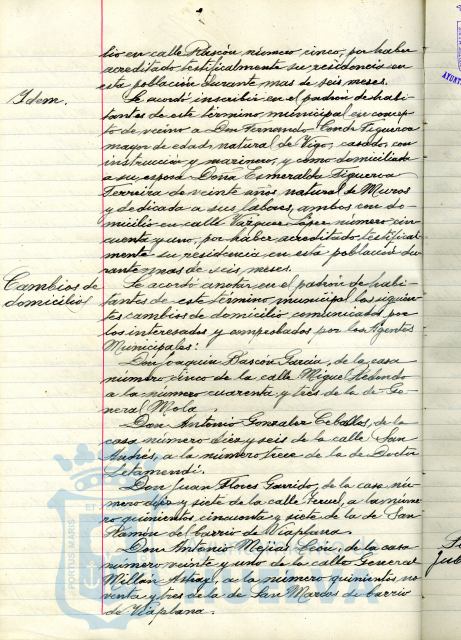 lio en calle Rascón número cinco, por haber
acreditado testificalmente su residencia en
esta población durante mas de seis meses.
Idem.
Se acordó inscribir en el padrón de habi-
tantes de este término municipal en concep-
to de vecino a Don Fernando Conde Figueroa
mayor de edad, natural de Vigo, casado, con
instrucción y marinero, y como domiciliada
a su esposa Doña Esmeralda Figueroa
Ferreira de veinte años natural de Muros
y dedicada a sus labores, ambos con do-
micilio en calle Vazquez López número cin-
cuenta y uno, por haber acreditado testifical-
mente su residencia en esta población du-
rante mas de seis meses.
Cambios de
domicilios
Se acordó anotar en el padrón de habi-
tantes de este término municipal los siguien-
tes cambios de domicilio comunicados por
los interesados y comprobados por los Agentes
Municipales:
Don Joaquín Bascón García, de la casa
número cinco de la calle Miguel Redondo
a la número cuarenta y tres de la de Ge-
neral Mola.
Don Antonio Gonzalez Ceballos, de la
casa número diez y seis de la calle San
Andrés, a la número trece de la de Doctor
Letamendi.
Don Juan Flores Garrido, de la casa nú-
mero diez y siete de la calle Teruel, a la núme-
ro quinientos cincuenta y siete de la de San
Ramon de barrio de Viaplana.
Don Antonio Mejias León, de la casa
número veinte y uno de la calle General
Millán Astray, a la número quinientos no-
venta y tres de la de San Marcos de barrio
de Viaplana.
PORTUS MARIS